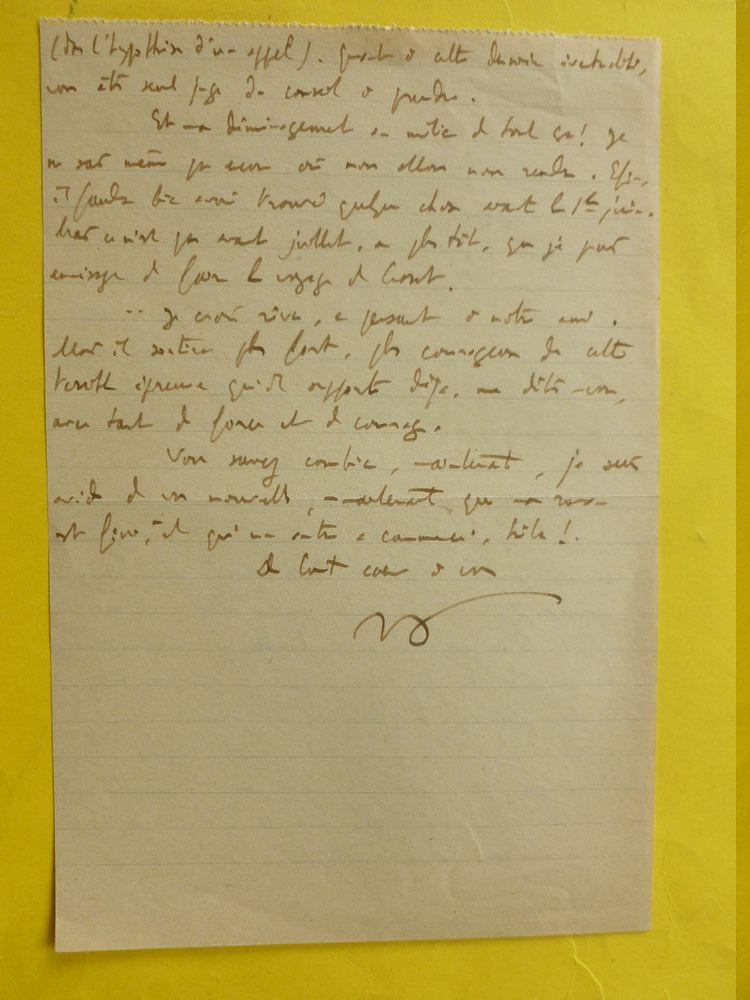 (dans l'hypothèse d'un appel). Quant à cette dernière
vous êtes seul juge du conseil à prendre.
Et un déménagement au milieu de tout ça! Je
ne sais même pas encore où nous allons nous rendre. Enfin,
il faudra bien avoir trouvé quelque chose avant le 1er juin.
Mais ce n'est pas avant juillet, au plus tôt, que je puis
envisager de faire le voyage de
.. Je crois rêver, en pensant à notre ami.
Mais il sortira plus fort, plus courageux de cette
terrible épreuve qu'il supporte déjà, me dites-vous,
avec tant de force et de courage.
Vous savez combien, maintenant, je suis
avide de vos nouvelles, maintenant que
est fini, et qu'un autre a commencé, hélas!
De tout cœur à vous